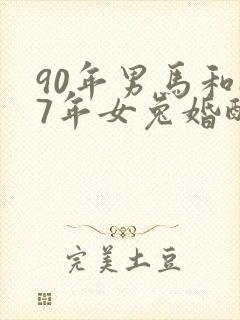 90年男馬和
7年女兔婚
完美土豆